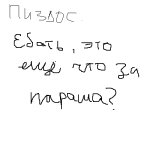 Пиздос.
Ебать, это
еще что за
параша?